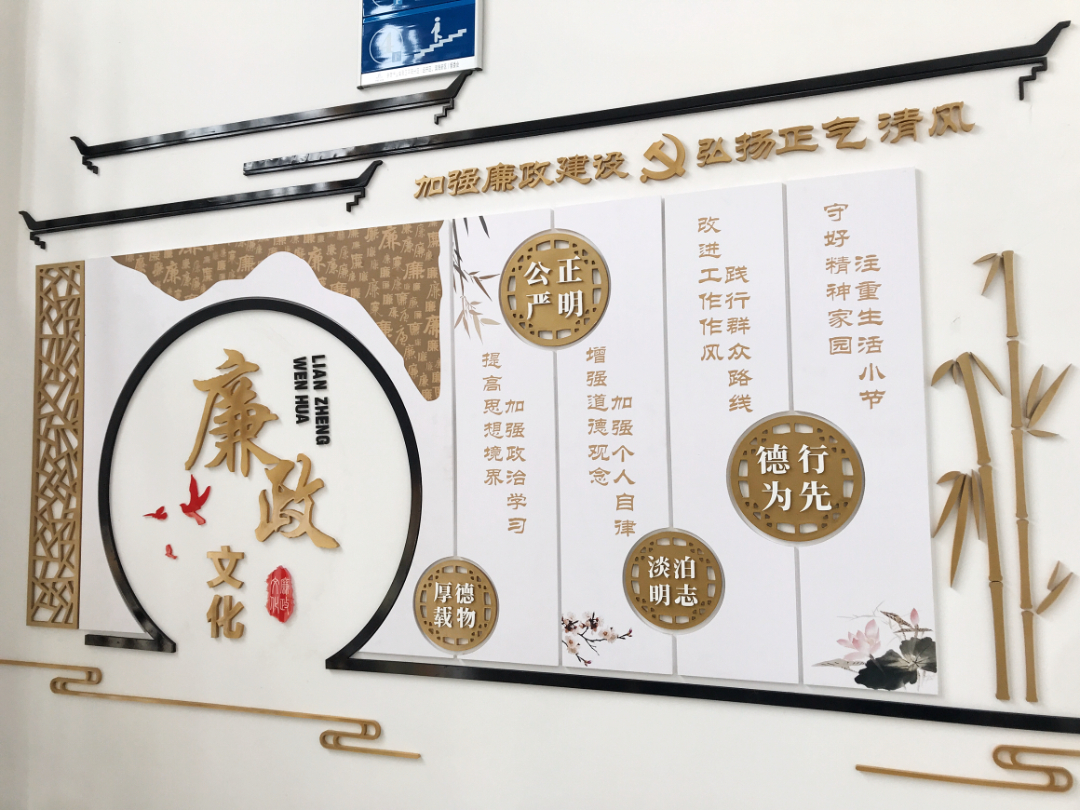 加强廉政建设 弘扬正气清风
LIAN ZHENG
WEN HUA
廉政
文化
廉政
文化
公正
严明
厚德
载物
淡泊
明志
德行
为先
提高思想境界
加强政治学习
增强道德观念
加强个人自律
改进工作作风
践行群众路线
守好精神家园
注重生活小节